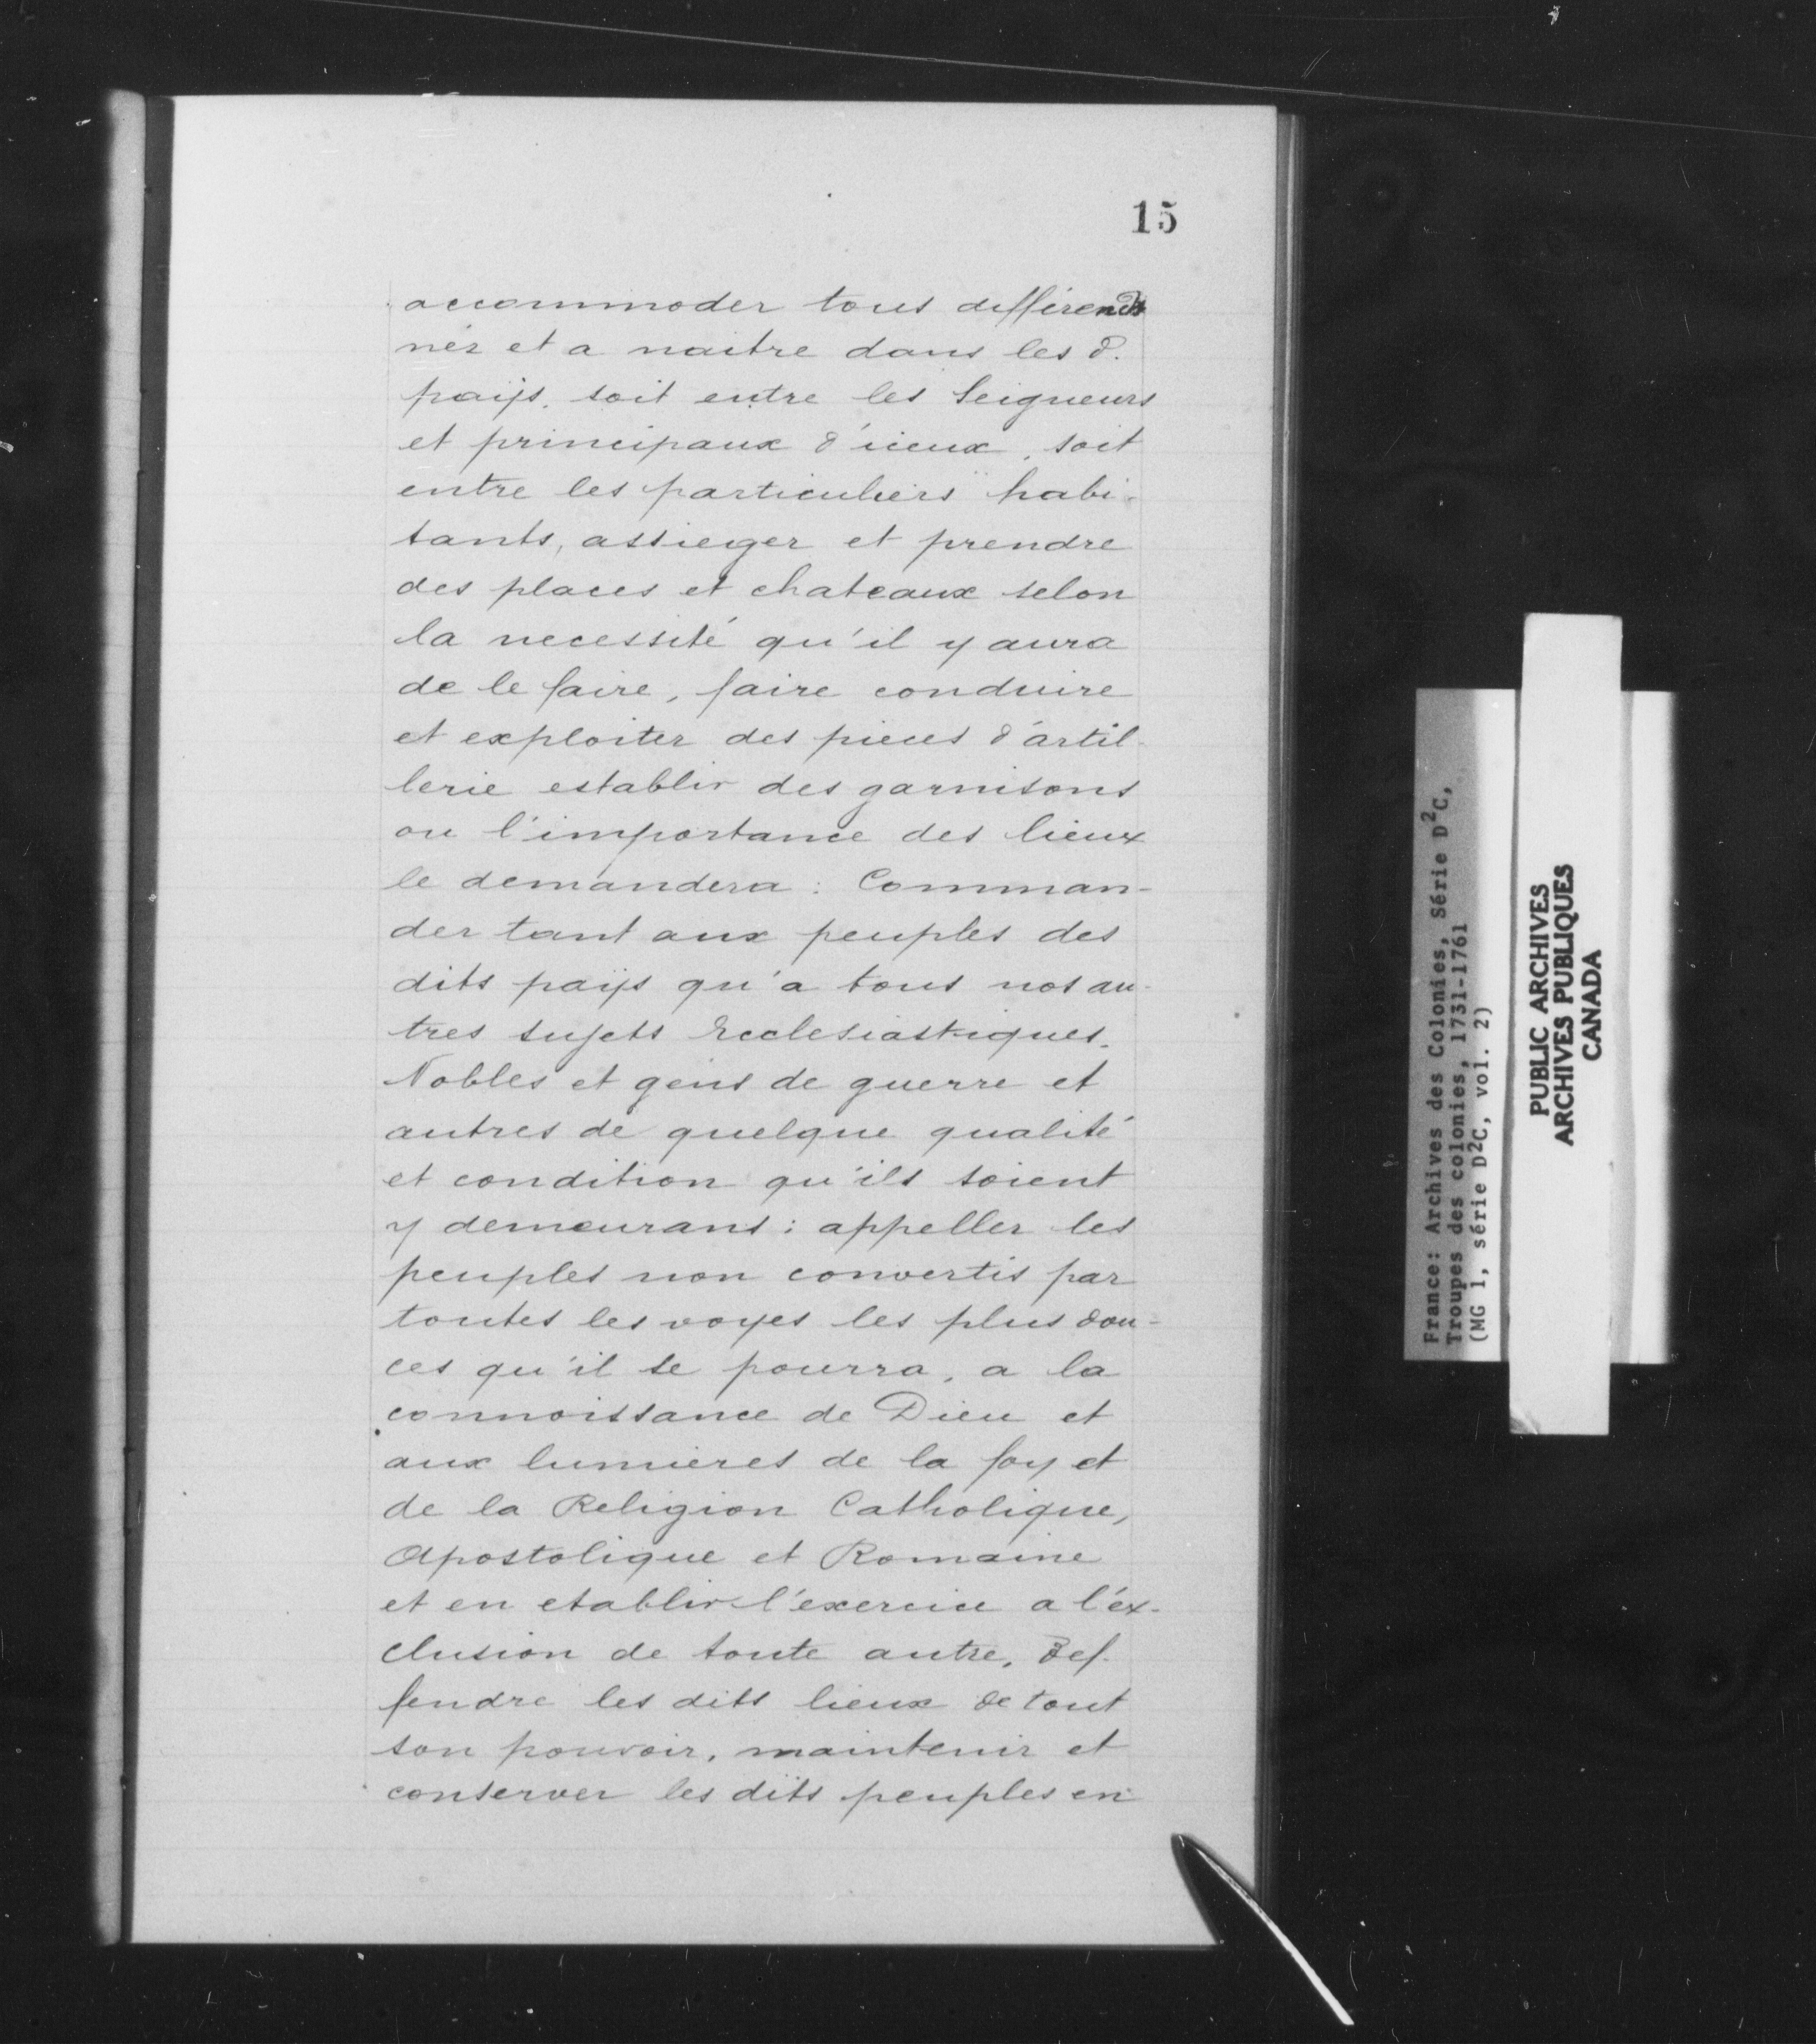 15
accommoder tous différends
néz et a naitre dans les d.
païs, soit entre les Seigneurs
et principaux d'iceux, soit
entre les particuliers habi-
tants, assieger et prendre
des places et chateaux selon
la necessité qu'il y aura
de le faire, faire conduire
et exploiter des pieces d'artil-
lerie establir des garnisons
ou l'importance des lieux
le demandera : Comman-
der tant aux peuples des
dits païs qu'a tous nos au-
tres sujets Ecclesiastiques.
Nobles et gens de guerre et
autres de quelque qualité
et condition qu'ils soient
y demeurans : appeller les
peuples non convertis par
toutes les voyes les plus dou-
ces qu'il se pourra, a la
connoissance de Dieu et
aux lumieres de la foy et
de la Religion Catholique,
Apostolique et Romaine
et en etablir l'exercice a l'ex-
clusion de toute autre, Def-
fendre les dits lieux de tout
son pouvoir, maintenir et
conserver les dits peuples en
France: Archives des Colonies, Série D²C,
Troupes des colonies, 1731-1761
(MG 1, série D²C, vol. 2)
PUBLIC ARCHIVES
ARCHIVES PUBLIQUES
CANADA